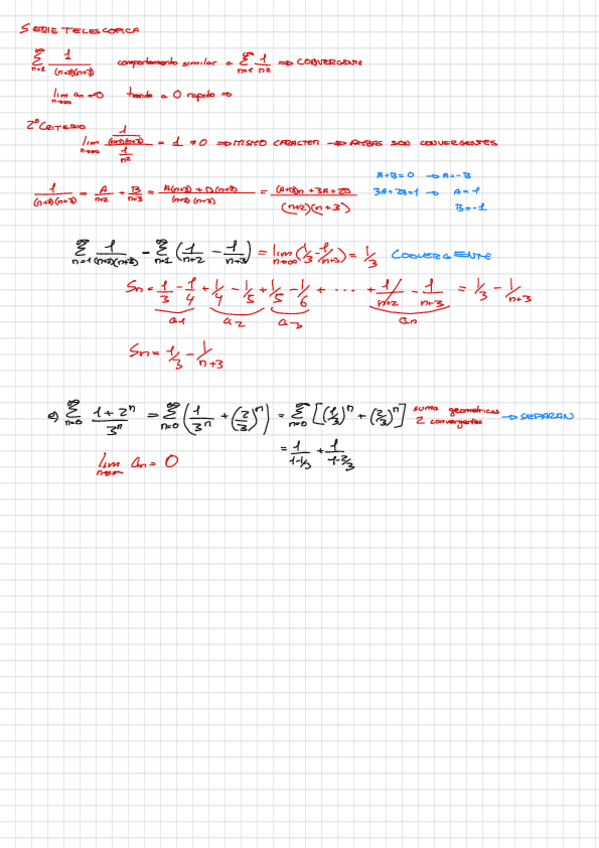 SERIE TELESCOPICA
∞ Σ n=1 1/((n+2)(n+3)) comportamiento similar a ∞ Σ n=1 1/n2 ⇒ CONVERGENTE
lim n→∞ an=0 tiende a 0 rapido ⇒
2º CRITERIO
lim n→∞ (1/((n+2)(n+3)))/(1/n2) = 1 ≠ 0 ⇒ MISMO CARACTER → AMBAS SON CONVERGENTES
1/((n+2)(n+3)) = A/(n+2) + B/(n+3) = (A(n+3) + B(n+2))/((n+2)(n+3)) = ((A+B)n + 3A+2B)/((n+2)(n+3))
A+B=0 → A=-B
3A+2B=1 → A=1
B=-1
∞ Σ n=1 1/((n+2)(n+3)) = ∞ Σ n=1 (1/(n+2) - 1/(n+3)) = lim n→∞ (1/3 - 1/(n+3)) = 1/3 CONVERGENTE
Sn = 1/3 - 1/4 + 1/4 - 1/5 + 1/5 - 1/6 + ... + 1/(n+2) - 1/(n+3) = 1/3 - 1/(n+3)
a1 a2 a3 an
Sn = 1/3 - 1/(n+3)
e) ∞ Σ n=0 (1+2^n)/3^n = ∞ Σ n=0 (1/3^n + (2/3)^n) = ∞ Σ n=0 [(1/3)^n + (2/3)^n] suma geometricas 2 convergentes → SEPARAN
= 1/(1-1/3) + 1/(1-2/3)
lim n→∞ an = 0